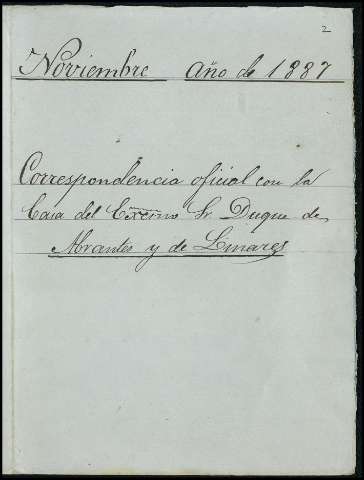 2
Noviembre año de 1887
Correspondencia oficial con la
Casa del Excmo Sr. Duque de
Abrantes y de Linares